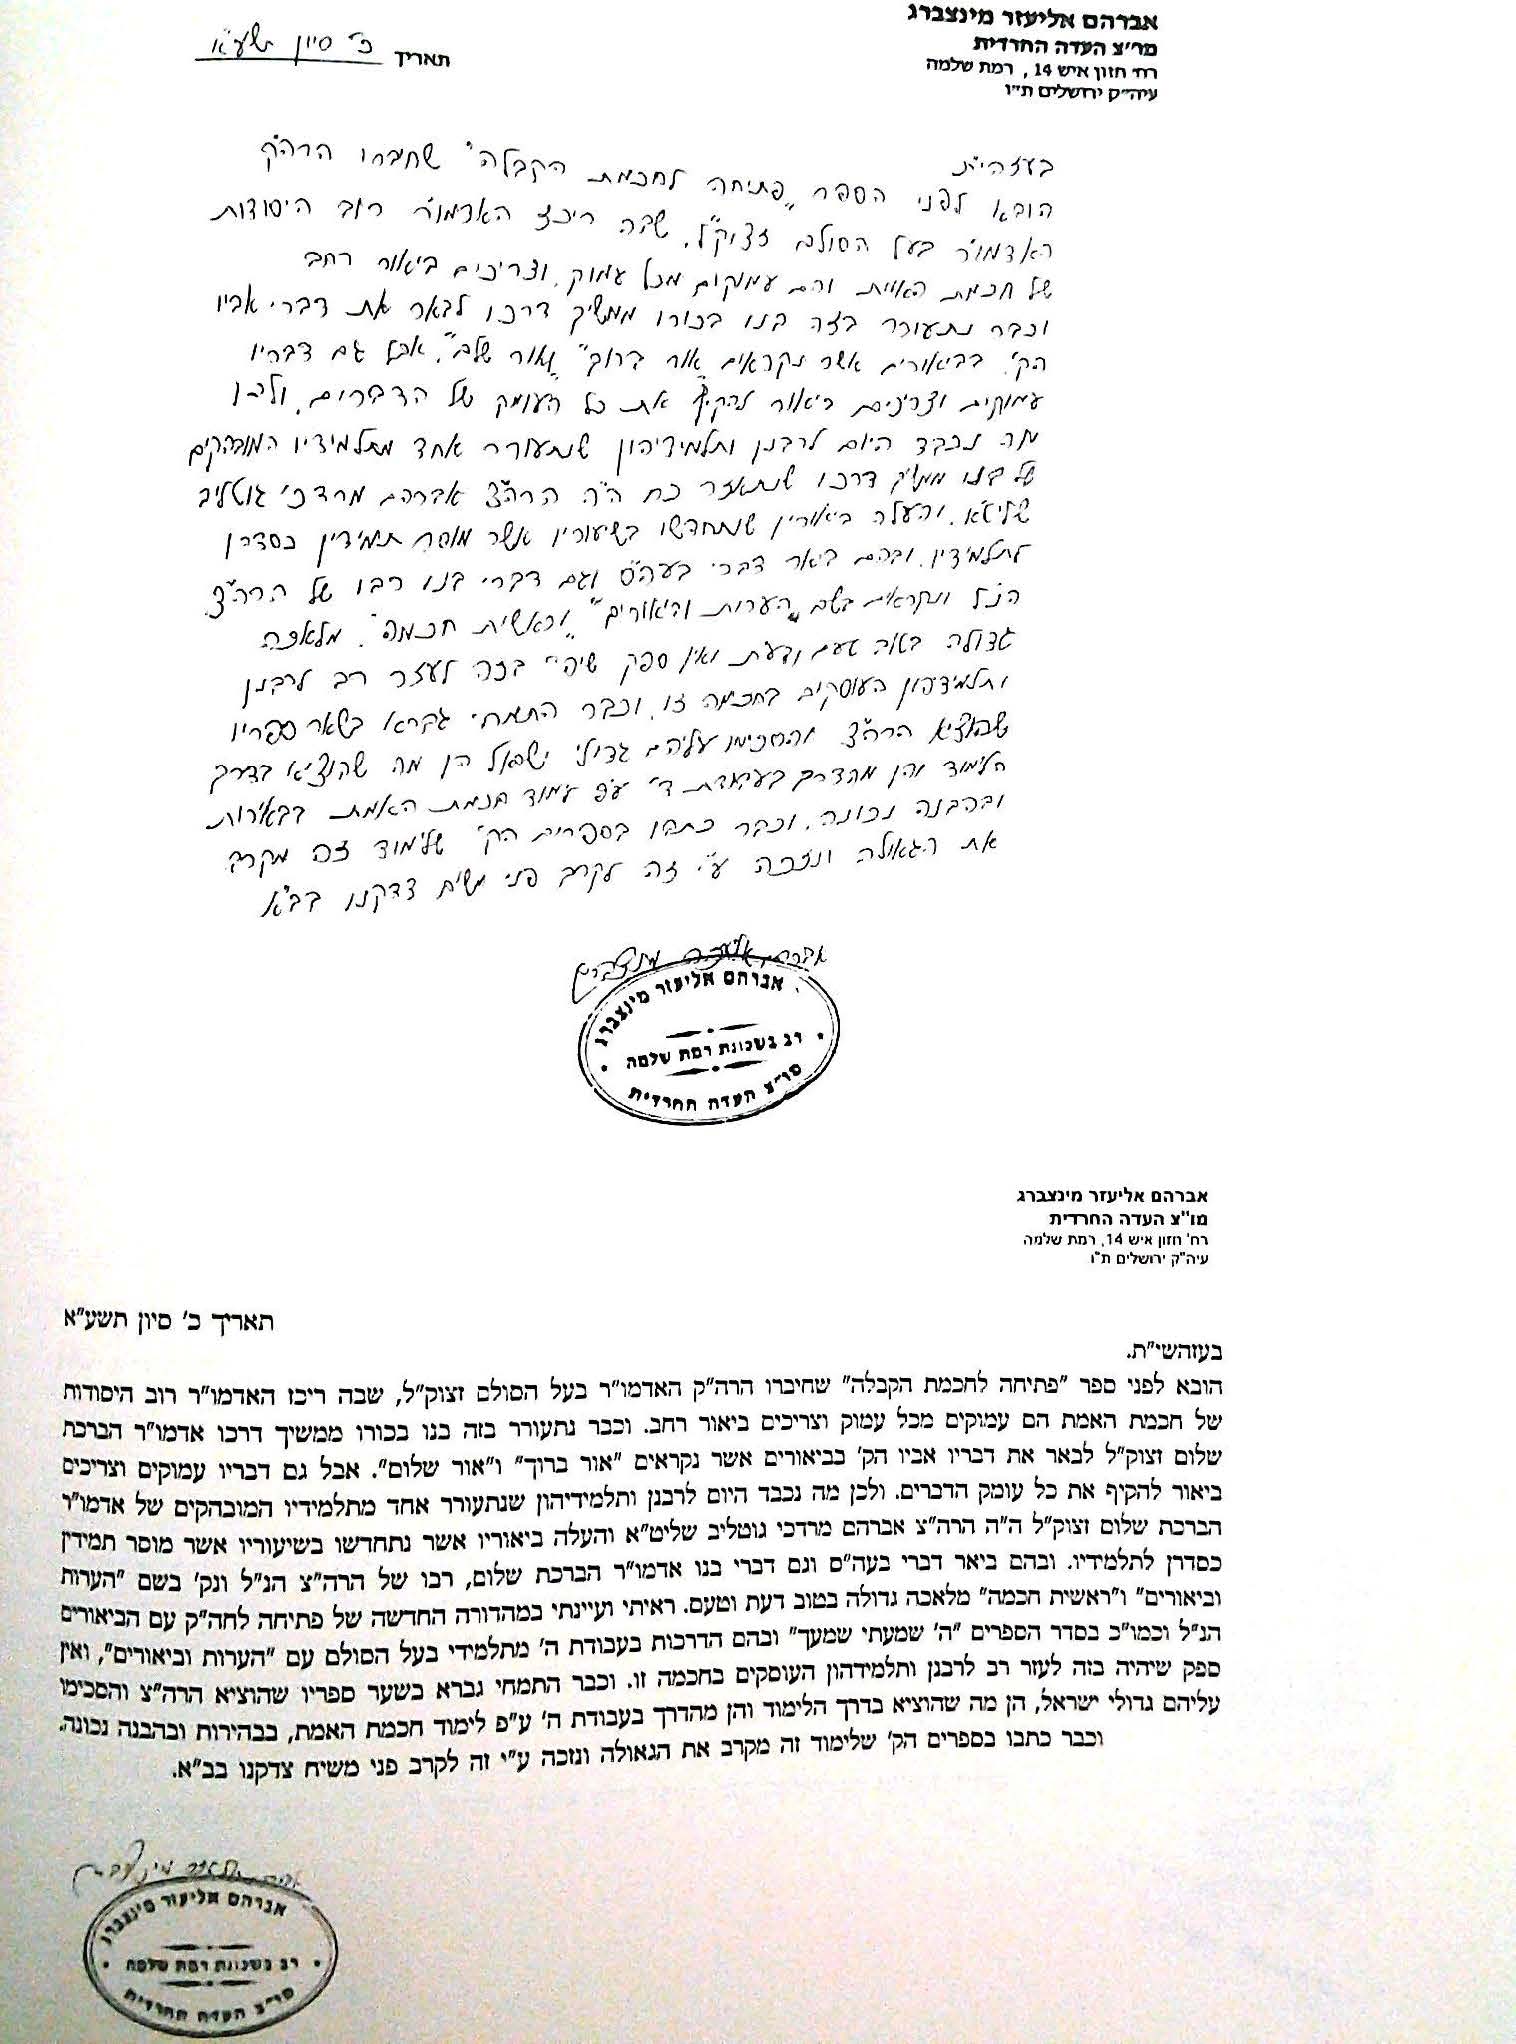 אברהם אליעזר מינצברג
מו״צ העדה החרדית
רח׳ חזון איש 14, רמת שלמה
עיה״ק ירושלים ת״ו
תאריך כ׳ סיון תשע״א
בעזהי״ת
הובא לפני הספר „פתיחה לחכמת הקבלה״ שחיברו הרה״ק
האדמו״ר בעל הסולם זצוק״ל, שבה ריכז האדמו״ר רוב היסודות
של חכמת האמת והם עמוקים מכל עמוק, וצריכים ביאור רחב
וכבר נתעורר בזה בנו בכורו ממשיך דרכו לבאר את דברי אביו
הק׳ בביאורים אשר נקראים „אור ברוך״ „ואור שלום״. אבל גם דבריו
עמוקים וצריכים ביאור להקיף את כל העומק של הדברים, ולכן
מה נכבד היום לרבנן ותלמידיהון שנתעורר אחד מתלמידיו המובהקים
של בנו ממשיך דרכו שנתאזר כח ה״ה הרה״צ אברהם מרדכי גוטליב
שליט״א, והעלה ביאורין שנתחדשו בשיעוריו אשר מוסר תמידין כסדרן
לתלמידיו, ובהם ביאר דברי בעה״ס וגם דברי בנו רבו של הרה״צ
הנ״ל ונקראים בשם „הערות וביאורים״ „וראשית חכמה״. מלאכה
גדולה בטוב טעם ודעת ואין ספק שיהי׳ בזה לעזר רב לרבנן
ותלמידיהון העוסקים בחכמה זו, וכבר התמחי גברא בשאר ספריו
שהוציא הרה״צ והסכימו עליהם גדולי ישראל הן מה שהוציא בדרך
הלימוד והן מהדרך בעבודת ד׳ ע״פ לימוד חכמת האמת בבהירות
ובהבנה נכונה, וכבר כתבו בספרים הק׳ שלימוד זה מקרב
את הגאולה ונזכה ע״י זה לקרב פני משיח צדקנו בב״א
אברהם אליעזר מינצברג
אברהם אליעזר מינצברג
רב בשכונת רמת שלמה
מו״צ העדה החרדית
אברהם אליעזר מינצברג
מו"צ העדה החרדית
רח' חזון איש 14, רמת שלמה
עיה"ק ירושלים ת"ו
תאריך כ' סיון תשע"א
בעזהשי"ת.
הובא לפני ספר "פתיחה לחכמת הקבלה" שחיברו הרה"ק האדמו"ר בעל הסולם זצוק"ל, שבה ריכז האדמו"ר רוב היסודות
של חכמת האמת הם עמוקים מכל עמוק וצריכים ביאור רחב. וכבר נתעורר בזה בנו בכורו ממשיך דרכו אדמו"ר הברכת
שלום זצוק"ל לבאר את דבריו אביו הק' בביאורים אשר נקראים "אור ברוך" ו"אור שלום". אבל גם דבריו עמוקים וצריכים
ביאור להקיף את כל עומק הדברים. ולכן מה נכבד היום לרבנן ותלמידיהון שנתעורר אחד מתלמידיו המובהקים של אדמו"ר
הברכת שלום זצוק"ל ה"ה הרה"צ אברהם מרדכי גוטליב שליט"א והעלה ביאוריו אשר נתחדשו בשיעוריו אשר מוסר תמידין
כסדרן לתלמידיו. ובהם ביאר דברי בעה"ס וגם דברי בנו אדמו"ר הברכת שלום, רבו של הרה"צ הנ"ל ונק' בשם "הערות
וביאורים" ו"ראשית חכמה" מלאכה גדולה בטוב דעת וטעם. ראיתי ועיינתי במהדורה החדשה של פתיחה לחה"ק עם הביאורים
הנ"ל וכמו"כ בסדר הספרים "ה' שמעתי שמעך" ובהם הדרכות בעבודת ה' מתלמידי בעל הסולם עם "הערות וביאורים", ואין
ספק שיהיה בזה לעזר רב לרבנן ותלמידהון העוסקים בחכמה זו. וכבר התמחי גברא בשער ספריו שהוציא הרה"צ והסכימו
עליהם גדולי ישראל, הן מה שהוציא בדרך הלימוד והן מהדרך בעבודת ה' ע"פ לימוד חכמת האמת, בבהירות ובהבנה נכונה.
וכבר כתבו בספרים הק' שלימוד זה מקרב את הגאולה ונזכה ע"י זה לקרב פני משיח צדקנו בב"א.
אברהם אליעזר מינצברג
אברהם אליעזר מינצברג
רב בשכונת רמת שלמה
מו״צ העדה החרדית